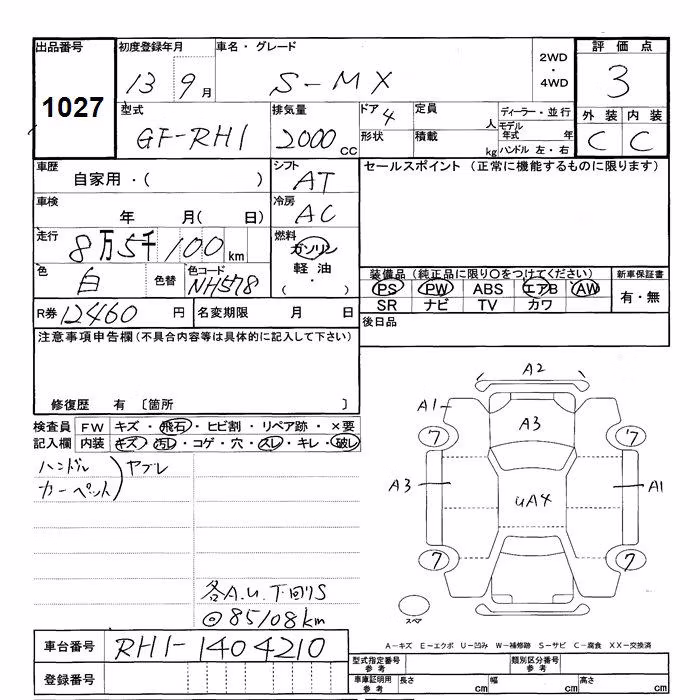 出品番号 初度登録年月 車名・グレード 2WD・4WD 評価点
1027 13 9月 S-MX 3
型式 排気量 ドア 4 定員 人 ディーラー・並行 外装 内装
GF-RH1 2000cc 形状 積載 kg モデル年式 年 ハンドル 左・右 C C
車歴 自家用・( ) シフト AT セールスポイント (正常に機能するものに限ります)
車検 年 月( 日) 冷房 AC
走行 8万5千100km 燃料 ガソリン
色 白 色替 色コード NH578 軽油 ( ・ )
装備品 (純正品に限り○をつけてください) 新車保証書
PS PW ABS エアB AW 有・無
SR ナビ TV カワ
R券 12460円 名変期限 月 日 後日品
注意事項申告欄 (不具合内容等は具体的に記入して下さい)
修復歴 有 〔箇所 〕
検査員 FW キズ・飛石・ヒビ割・リペア跡・×要
記入欄 内装 キズ・汚レ・コゲ・穴・スレ・キレ・破レ
ハンドル
カーペット ヤブレ
A2
A1 A3
7 7
A3 uA4 A1
7 7
スペア
各A.U.下回りS
◎85108km
A-キズ E-エクボ U-凹み W-補修跡 S-サビ C-腐食 XX-交換済
車台番号 RH1-1404210 型式指定番号 参考 類別区分番号 参考
登録番号 車庫証明用 参考 長さ cm 幅 cm 高さ cm